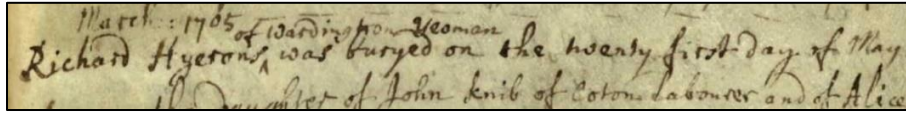 March : 1705
of wardington Yeoman
Richard Hyerons ‸ was buryed on the twenty first day of May
the daughter of John Knib of Coton Labourer and of Alice